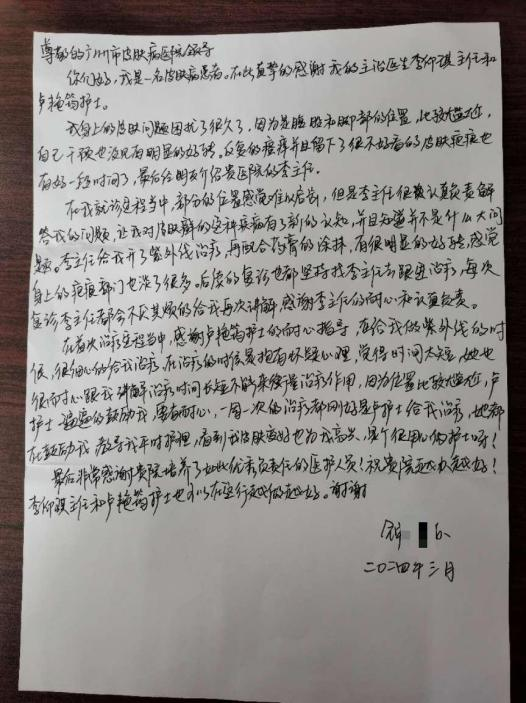 尊敬的广州市皮肤病医院领导
你们好,我是一名皮肤病患者。在此真挚的感谢我的主治医生李仰琪主任和
卢艳筠护士。
我身上的皮肤问题困扰了很久了,因为是臀部和脚部的位置,比较尴尬,
自己干预也没见有明显的好转。反复的瘙痒并且留下了很不好看的皮肤疤痕也
有好一段时间了,最后经朋友介绍贵医院的李主任。
在我就诊过程当中,部分的位置感觉难以启齿,但是李主任很认真负责解
答我的问题,让我对皮肤癣的这种疾病有了新的认知,并且知道并不是什么大问
题。李主任给我开了紫外线治疗,再配合药膏的涂抹,有很明显的好转,感觉
身上的疤痕都淡了很多。后续的复诊也都坚持找李主任看跟团治疗,每次
复诊李主任都会不厌其烦的给我再次讲解,感谢李主任的耐心和认真负责。
在首次治疗过程当中,感谢卢艳筠护士的耐心指导,在给我做紫外线的时
候,很细心的给我治疗。在治疗的时候是抱有怀疑心理,觉得时间太短,她也
很耐心跟我讲解治疗时间长短不能来衡量治疗作用,因为位置比较尴尬,卢
护士一遍遍的鼓励我,要有耐心,一周一次的治疗都刚好是卢护士给我治疗,她都
在鼓励我教导我平时护理,看到我皮肤变好也为我高兴,是个很用心的护士呀!
最后非常感谢贵院培养了如此优秀负责任的医护人员!祝贵院越办越好!
李仰琪主任和卢艳筠护士也可以在医行越做越好。谢谢
二〇二四年三月